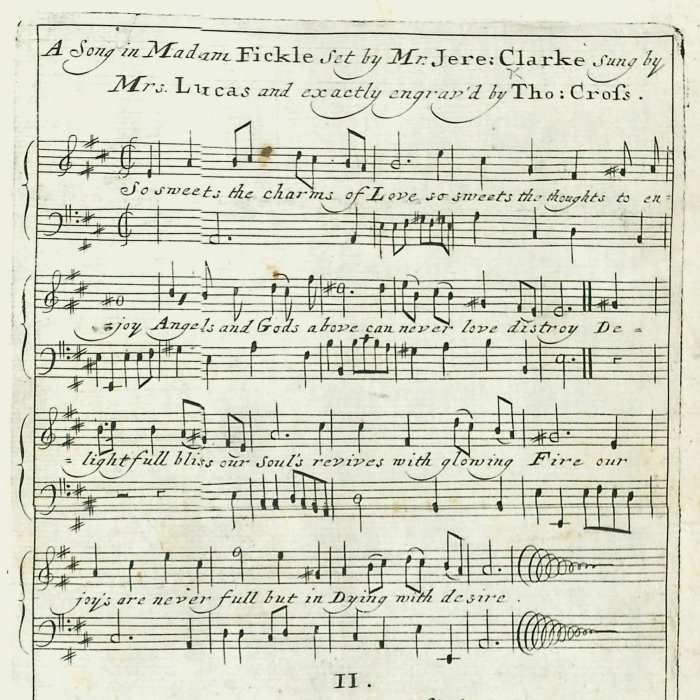 A Song in Madam Fickle set by Mr. Jere: Clarke sung by
Mrs. Lucas and exactly engrav'd by Tho: Croſs.
So sweets the charms of Love so sweets the thoughts to en=
=joy Angels and Gods above can never love distroy De=
=lightfull bliss our soul's revives with glowing Fire our
joy's are never full but in Dying with desire.
II.